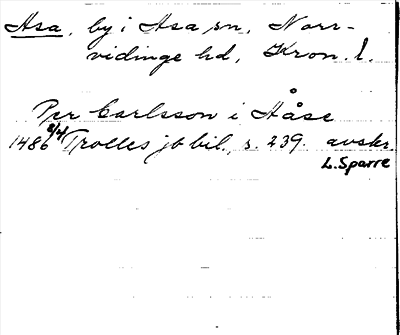 Asa, by i Asa sn, Norr-
vidinge hd, Kron. l.
Per Carlsson i Håse
1486 8/4 Trolles jb bil., s. 239. avskr.
L. Sparre